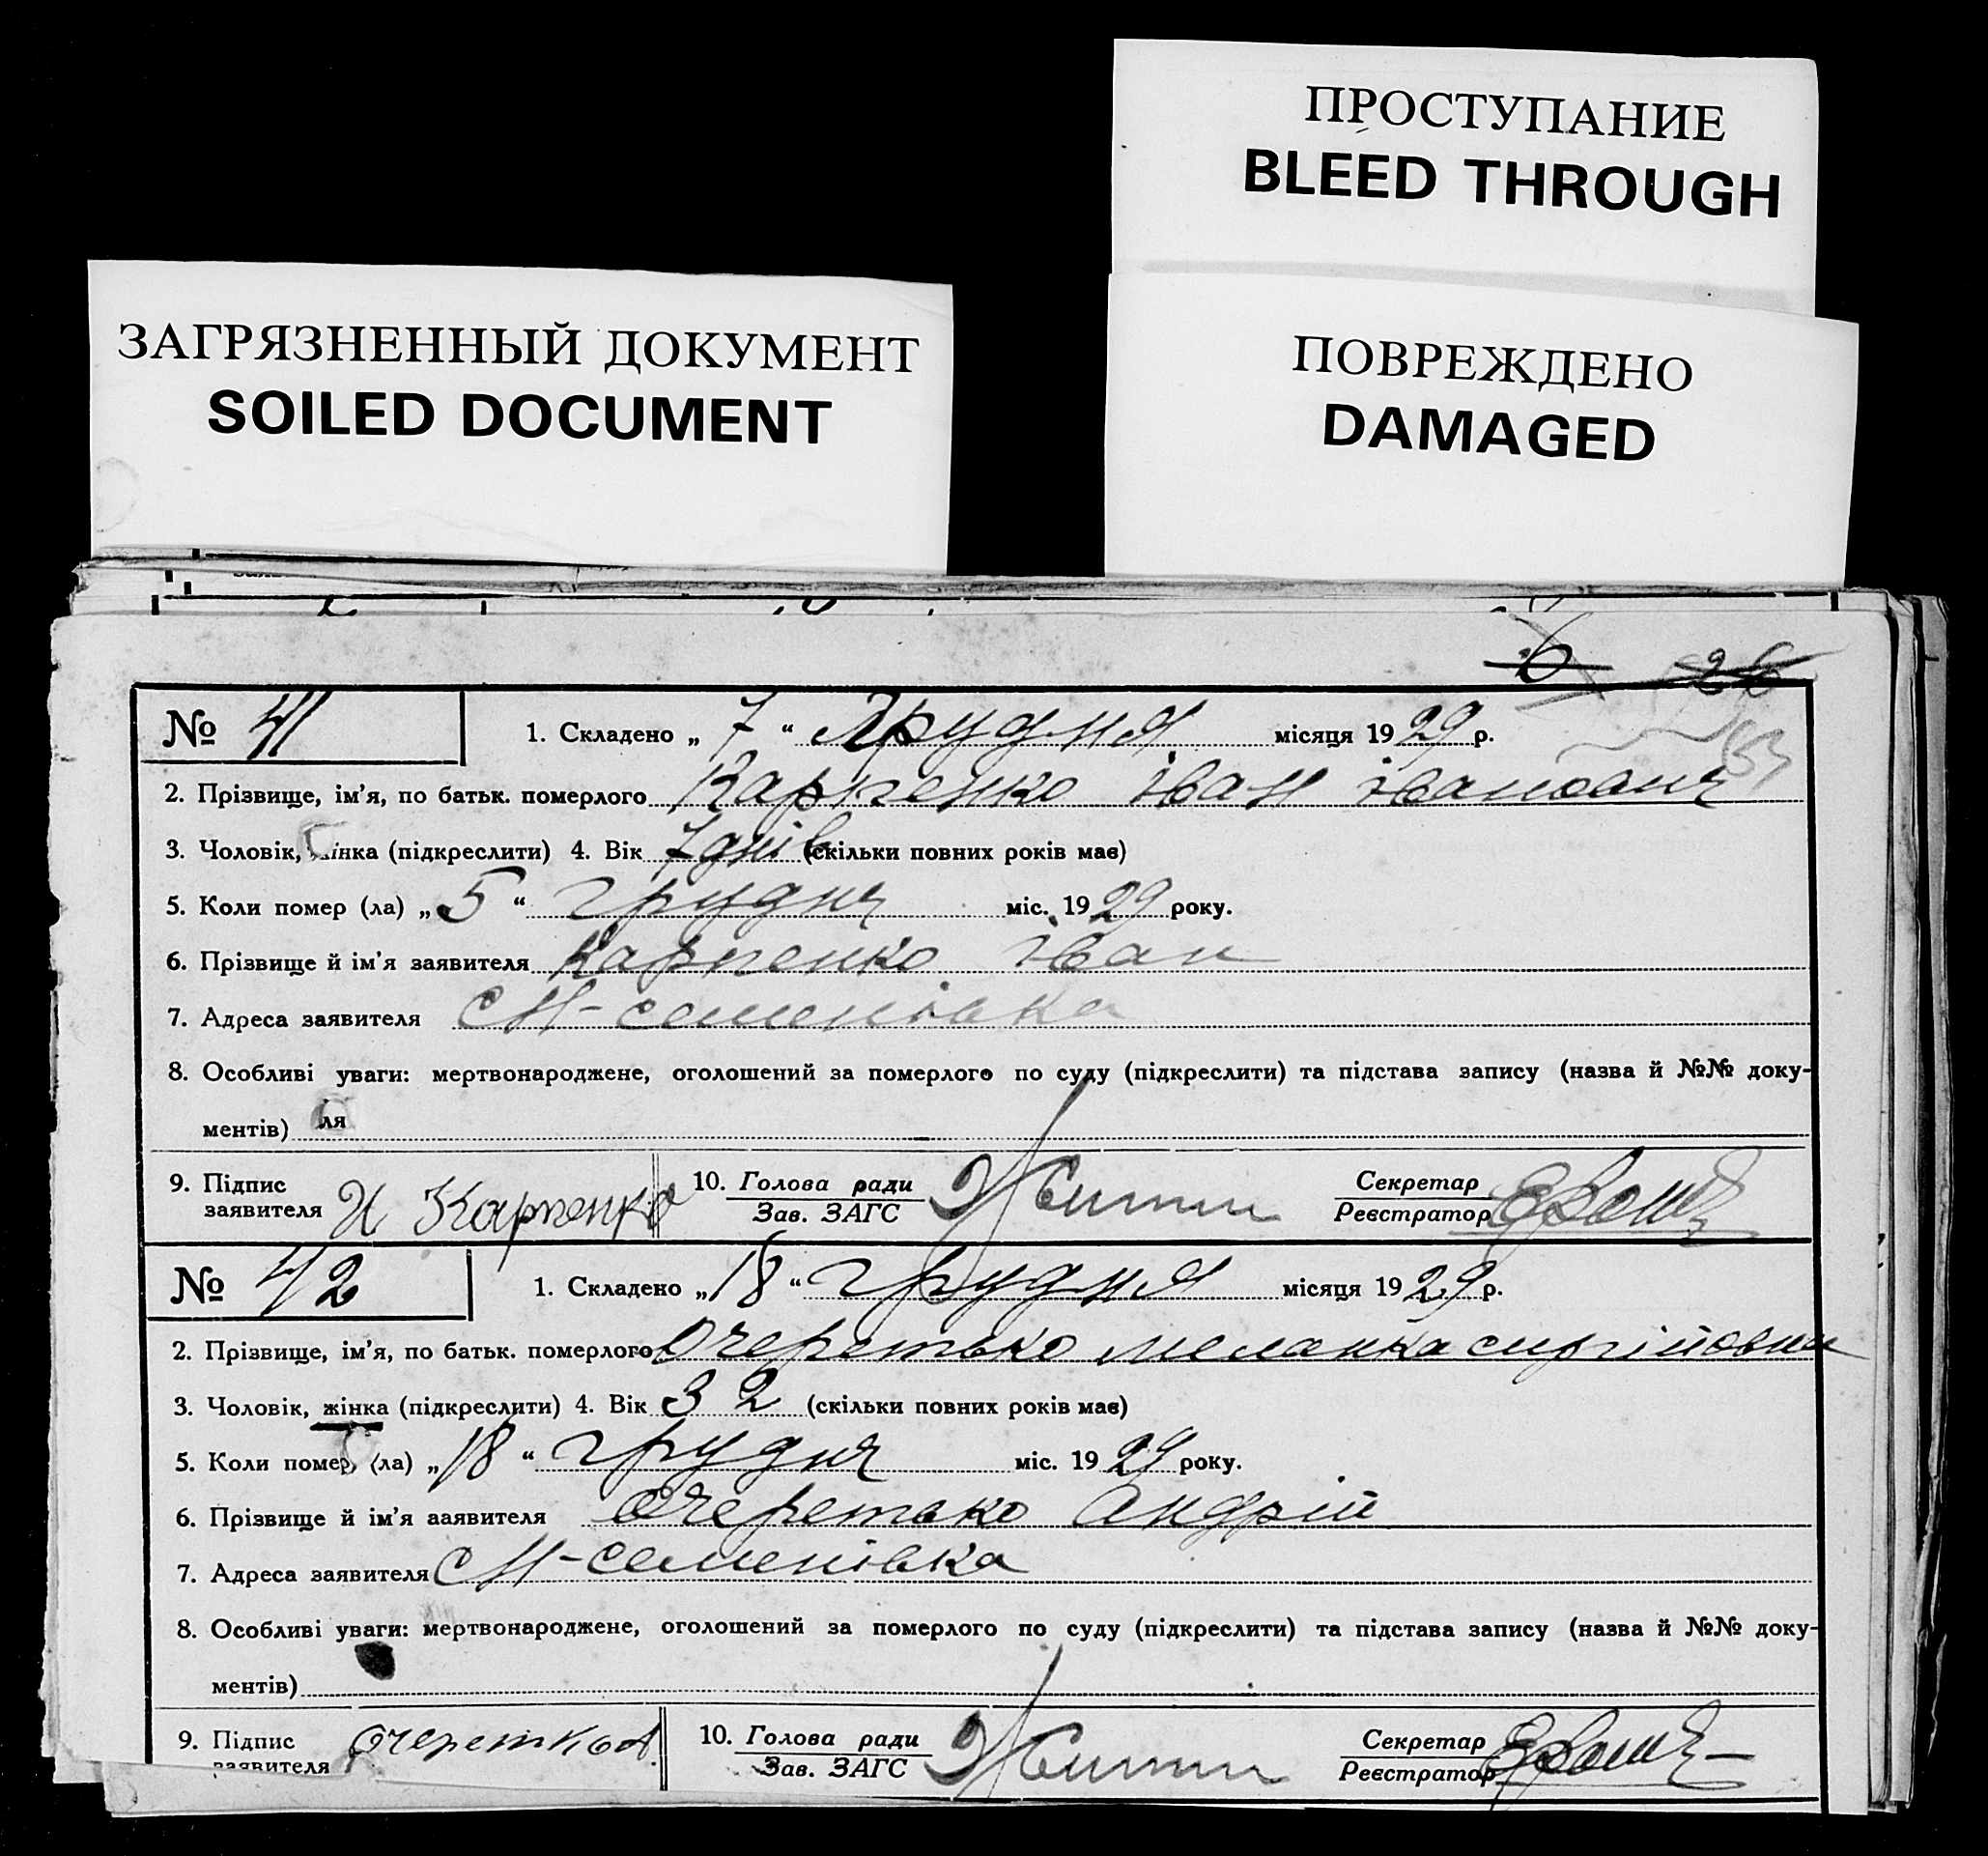 ПРОСТУПАНИЕ
BLEED THROUGH
ЗАГРЯЗНЕННЫЙ ДОКУМЕНТ
SOILED DOCUMENT
ПОВРЕЖДЕНО
DAMAGED
6 26
№ 41 1. Складено „ 7 “ Грудня місяця 1929 р.
2. Прізвище, ім'я, по батьк. померлого Карпенко іван іванович
3. Чоловік, жінка (підкреслити) 4. Вік 7 днів (скільки повних років має)
5. Коли помер (ла) „ 5 “ грудня міс. 1929 року.
6. Прізвище й ім'я заявителя Карпенко іван
7. Адреса заявителя с М-семенівка
8. Особливі уваги: мертвонароджене, оголошений за померлого по суду (підкреслити) та підстава запису (назва й №№ доку-
ментів) ля
9. Підпис заявителя И Карпенко 10. Голова ради Секретар
Зав. ЗАГС Реєстратор
№ 42 1. Складено „ 18 “ грудня місяця 1929 р.
2. Прізвище, ім'я, по батьк. померлого Очеретько меланка
3. Чоловік, жінка (підкреслити) 4. Вік 32 (скільки повних років має)
5. Коли помер (ла) „ 18 “ грудня міс. 1929 року.
6. Прізвище й ім'я ааявителя Очеретько Андрій
7. Адреса заявителя с М-семенівка
8. Особливі уваги: мертвонароджене, оголошений за померлого по суду (підкреслити) та підстава запису (назва й №№ доку-
ментів)
9. Підпис заявителя Очеретко А. 10. Голова ради Секретар
Зав. ЗАГС Реєстратор